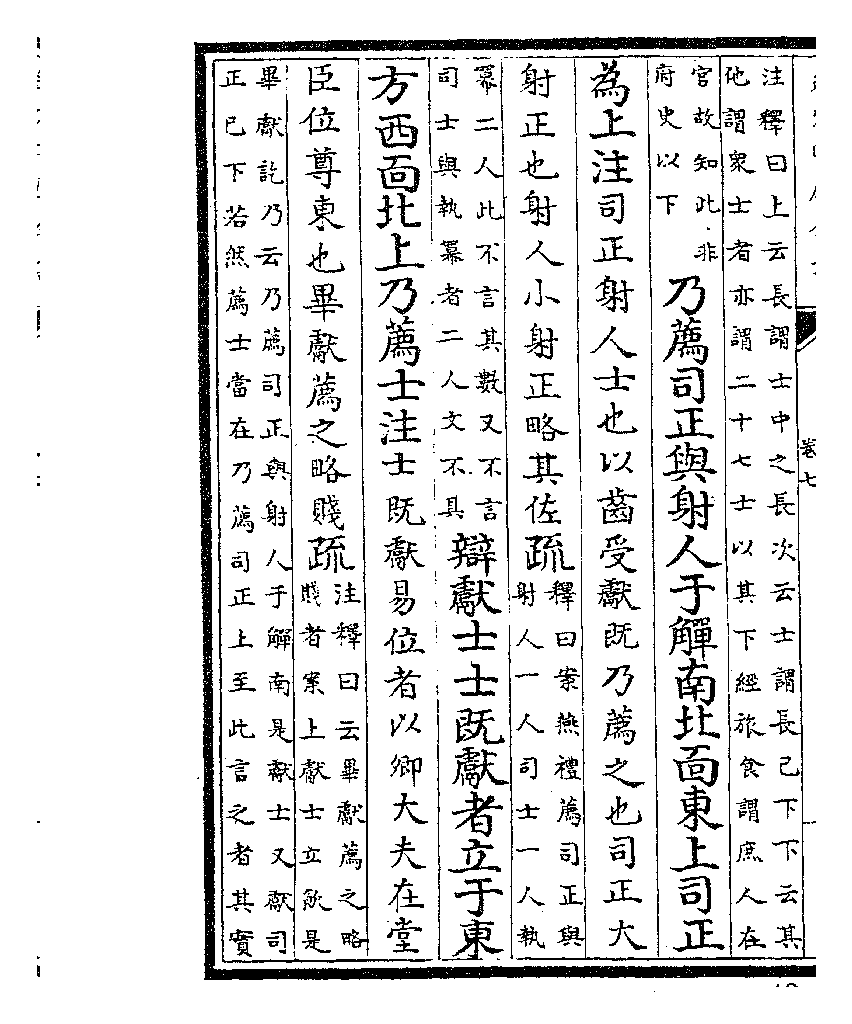 卷七
注釋曰上云長謂士中之長次云士謂長已下下云其
他謂衆士者亦謂二十七士以其下經旅食謂庶人在
官故知此非
府史以下
乃薦司正與射人于觶南北面東上司正
為上注司正射人士也以齒受獻既乃薦之也司正大
射正也射人小射正略其佐疏
釋曰案燕禮薦司正與
射人一人司士一人執
冪二人此不言其數又不言
司士與執冪者二人文不具
辯獻士士既獻者立于東
方西面北上乃薦士注士既獻易位者以卿大夫在堂
臣位尊東也畢獻薦之略賤疏
注釋曰云畢獻薦之略
賤者案上獻士立飲是
畢獻訖乃云乃薦司正與射人于觶南是獻士又獻司
正已下若然薦士當在乃薦司正上至此言之者其實